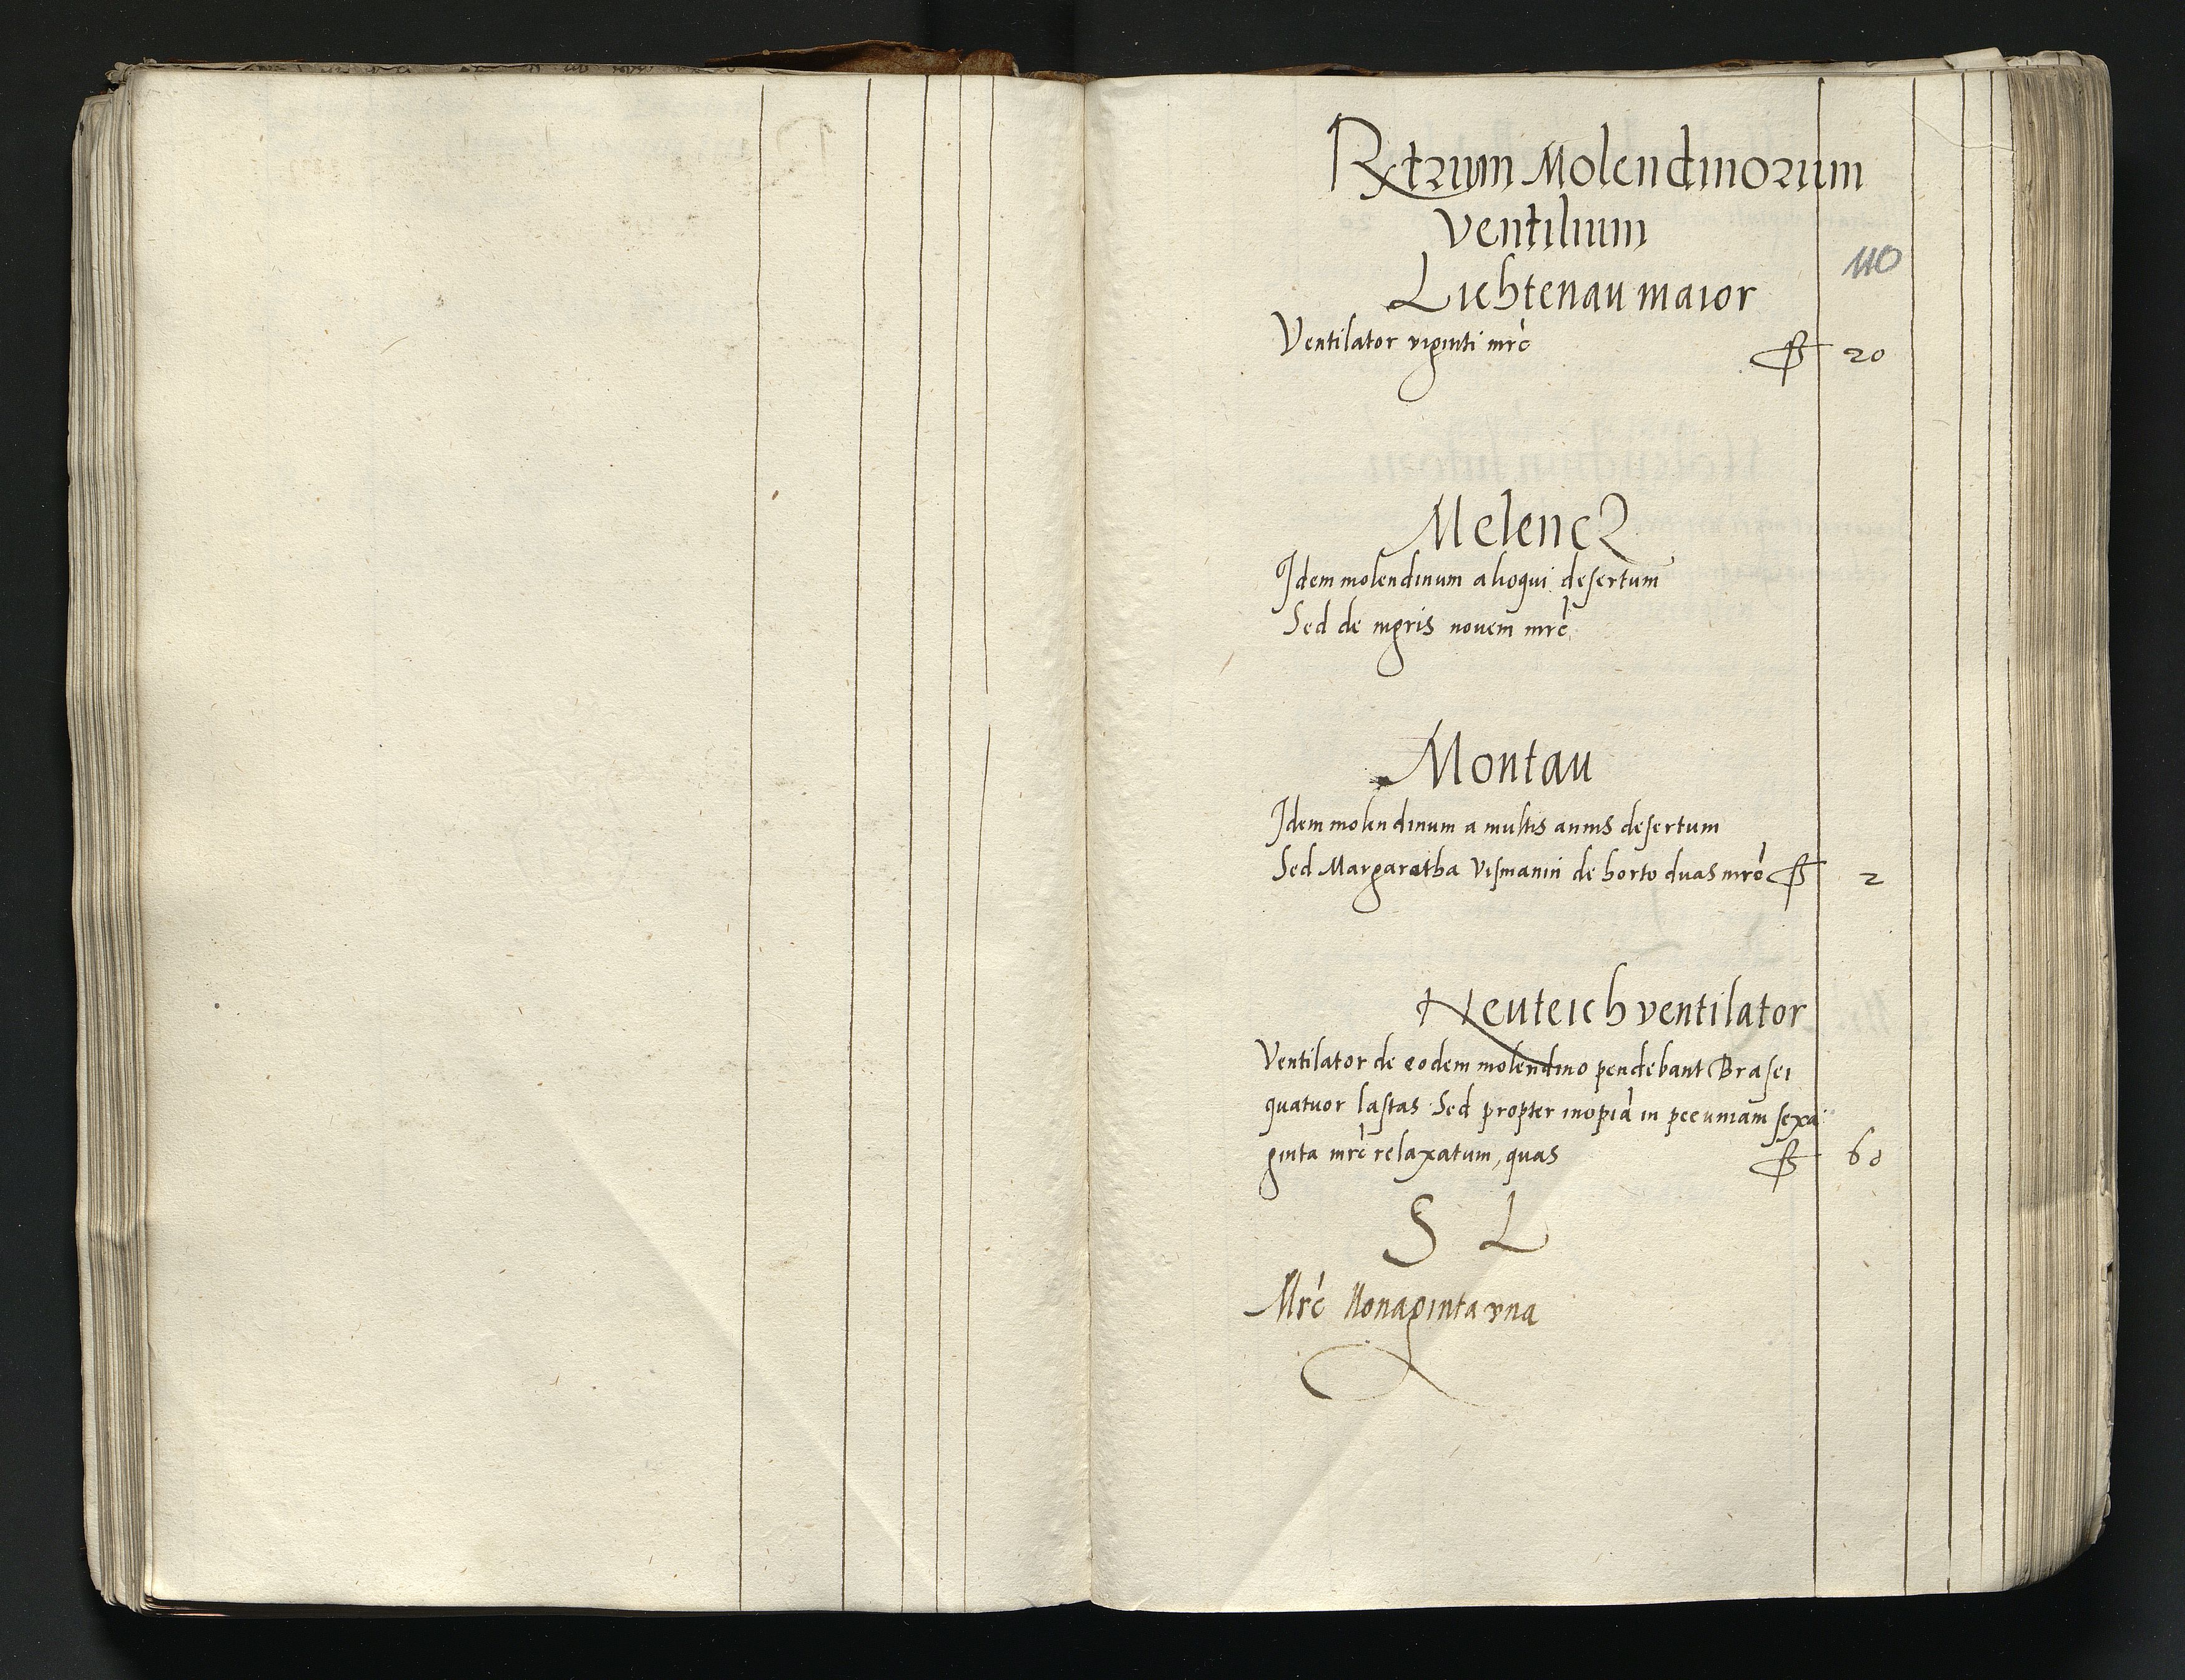 Rxtrum Molendinorum
Ventilium
110
Lichtenau maior
Ventilator viginti mrc 20
Melencz
Idem molendinum alioqui desertum
Sed de nigris nouem mrc
Montau
Idem molendinum a multis annis desertum
Sed Margaretha Vismanin de horto duas mrc 2
Neuteich ventilator
Ventilator de eodem molendino pendebant Brasei
quatuor lastas Sed propter inopiā in pecuniam sexa
ginta mrc relaxatum, quas 60
S L
Mrc Nonaginta vna